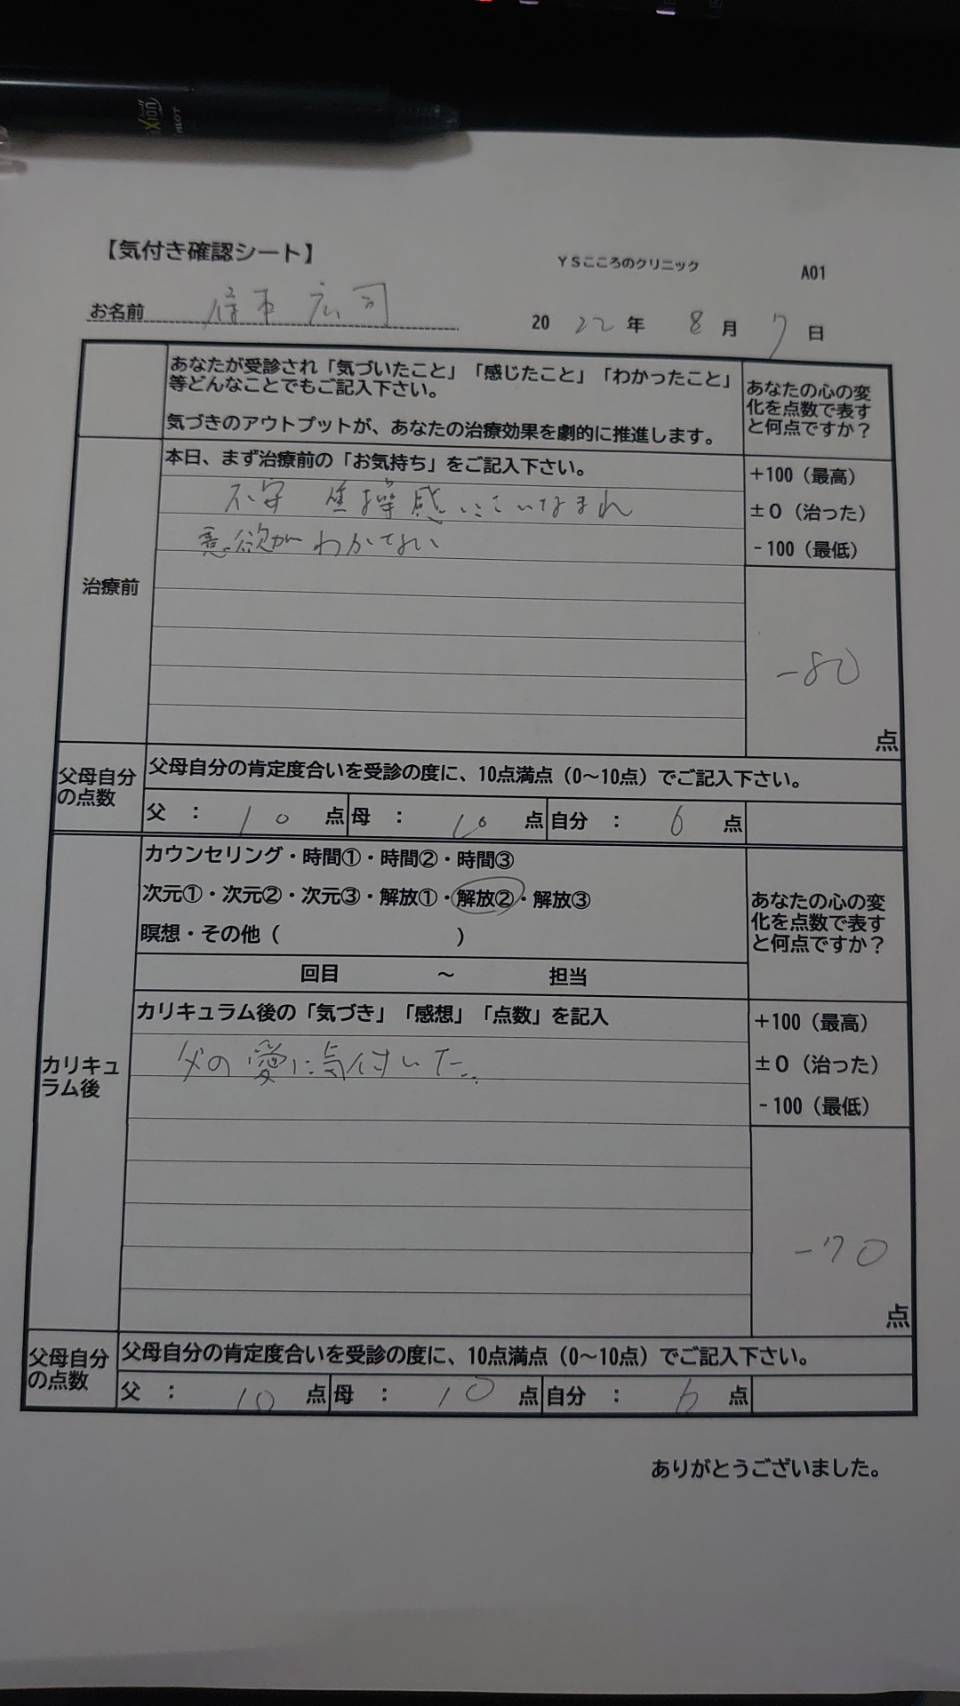 【気付き確認シート】
YSこころのクリニック
A01
お名前 広司
2022年 8月 7日
あなたが受診され「気づいたこと」「感じたこと」「わかったこと」
等どんなことでもご記入下さい。
気づきのアウトプットが、あなたの治療効果を劇的に推進します。
あなたの心の変
化を点数で表す
と何点ですか？
治療前
本日、まず治療前の「お気持ち」をご記入下さい。
不安 焦操感にさいなまれ
意欲がわかない
+100（最高）
±0（治った）
-100（最低）
-80
点
父母自分
の点数
父母自分の肯定度合いを受診の度に、10点満点（0～10点）でご記入下さい。
父 ： 10 点 母 ： 10 点 自分 ： 6 点
カリキュ
ラム後
カウンセリング・時間①・時間②・時間③
次元①・次元②・次元③・解放①・解放②・解放③
瞑想・その他（ ）
回目 ～ 担当
あなたの心の変
化を点数で表す
と何点ですか？
カリキュラム後の「気づき」「感想」「点数」を記入
父の愛に気付いた。
+100（最高）
±0（治った）
-100（最低）
-70
点
父母自分
の点数
父母自分の肯定度合いを受診の度に、10点満点（0～10点）でご記入下さい。
父 ： 10 点 母 ： 10 点 自分 ： 6 点
ありがとうございました。